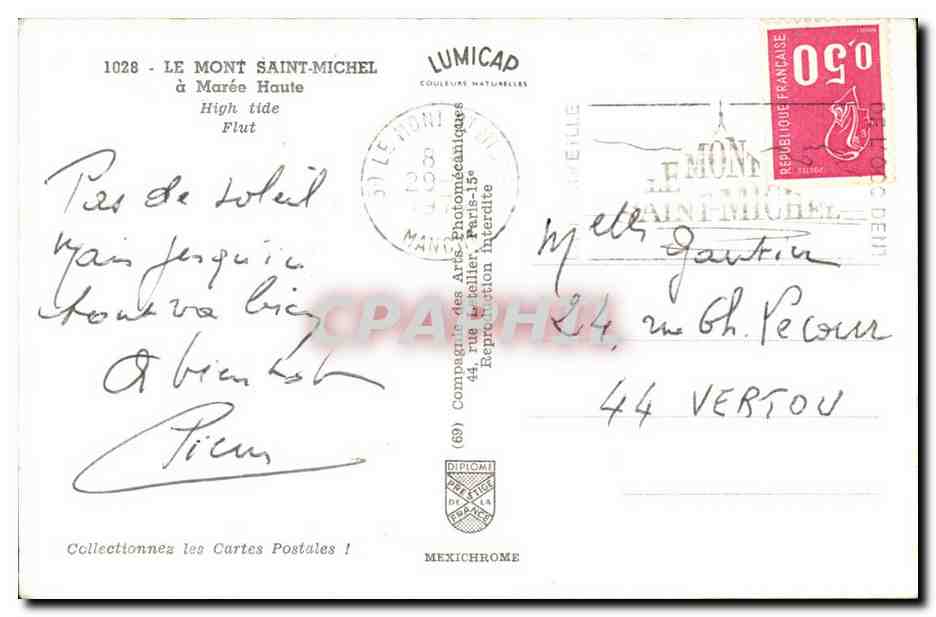 1028 - LE MONT SAINT-MICHEL
à Marée Haute
High tide
Flut
Pas de soleil
mais jusqu'ici
tout va bien
A bientot
Pierre
Collectionnez les Cartes Postales !
LUMICAP
COULEURS NATURELLES
(69) Compagnie des Arts Photomécaniques
44, rue Letellier, Paris-15e
Reproduction interdite
DIPLOME
PRESTIGE
DE LA
FRANCE
MEXICHROME
50 LE MONT
MANCHE
LE MONT
SAINT-MICHEL
DE L'OCCIDENT
0,50
REPUBLIQUE FRANÇAISE
POSTES
Melle Gautier
24, rue Ch. Pecour
44 VERTOU
CPAPHIL